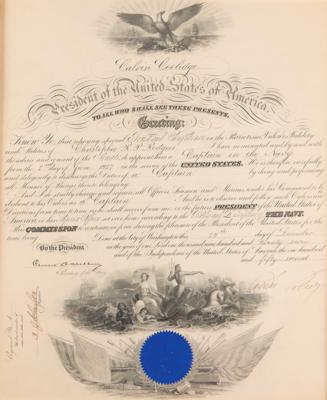 Calvin Coolidge
President of the United States of America,
TO ALL WHO SHALL SEE THESE PRESENTS,
Greeting:
Know Ye, that reposing special Trust and Confidence in the Patriotism, Valor, Fidelity
and Abilities of Christopher R. P. Rodgers I have nominated and by and with
the advice and consent of the Senate do appoint him a Captain in the Navy
from the day of June 1927 in the service of the UNITED STATES. He is therefore carefully
and diligently to discharge the duties of a Captain by doing and performing
all Manner of Things thereto belonging.
And I do strictly charge and require all Officers, Seamen and Marines under his Command to be
obedient to his Orders as a Captain And he is to observe and follow such Orders and
Directions from time to time as he shall receive from me or the future PRESIDENT of the United States of
America or his Superior Officer set over him, according to the Rules and Discipline of THE NAVY.
This COMMISSION to continue in force during the pleasure of the President of the United States for the
time being.
Done at the City of Washington this day of December
in the year of our Lord one thousand nine hundred and Twenty seven
and of the Independence of the United States of America the one hundred and
fifty second
By the President
Secretary of the Navy